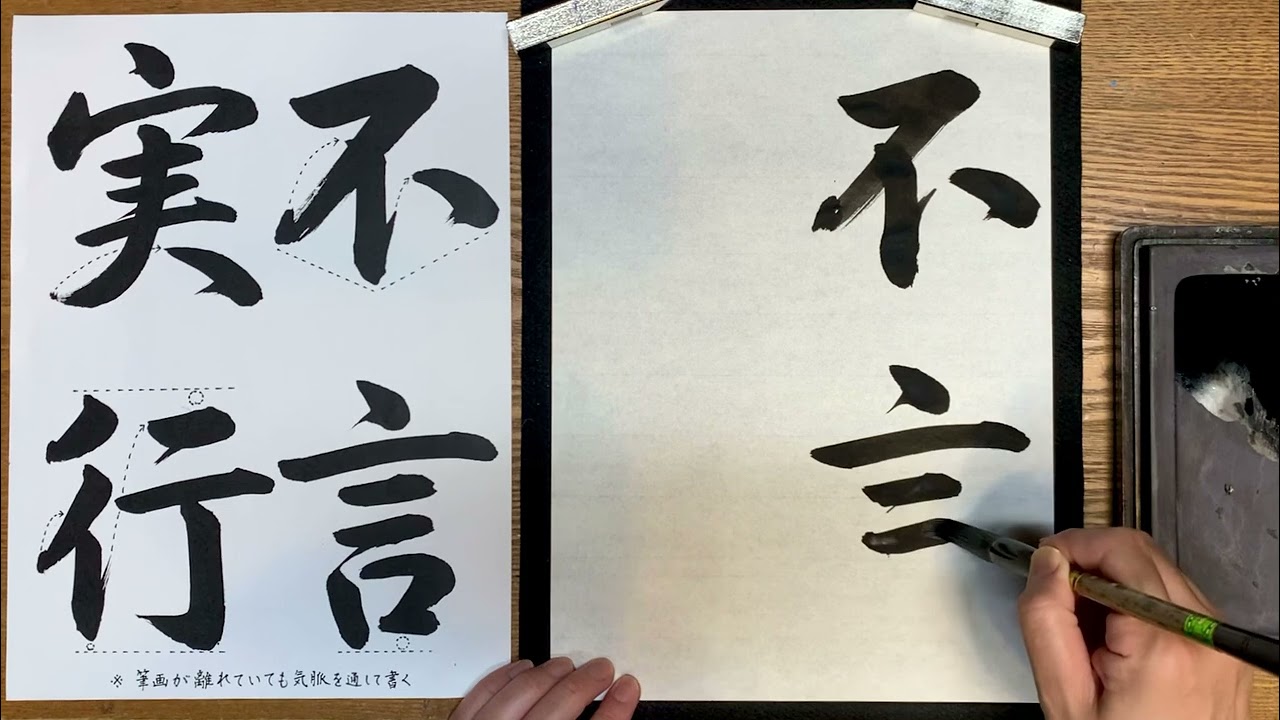 不言
実行
※ 筆画が離れていても気脈を通して書く
不